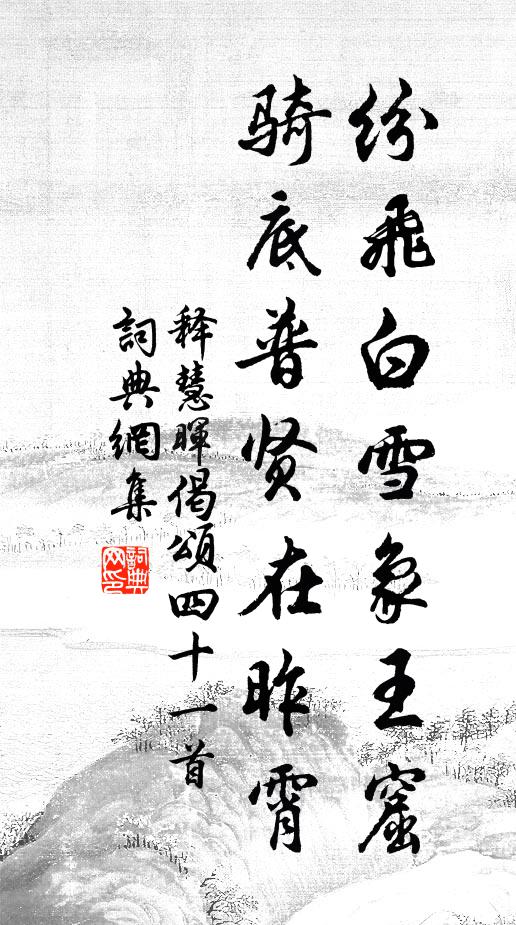 纷飞白雪象王窟
骑底普贤在昨霄
释慧晖偈颂四十一首
詞典網集
詞典网印